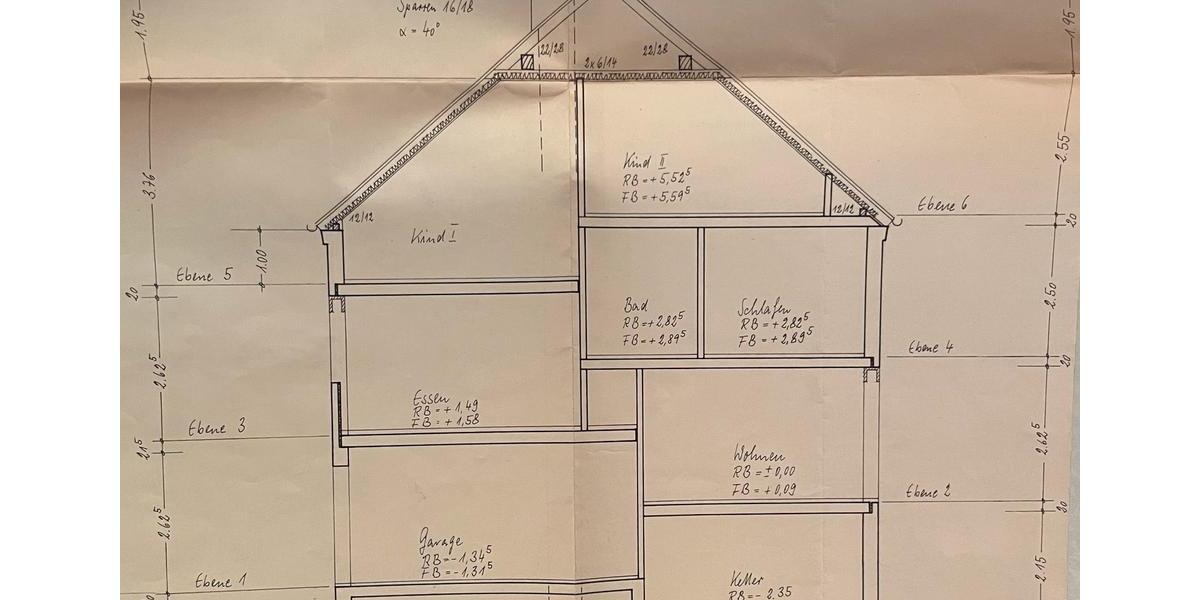 Sparren 16/18
α = 40°
1.95
1.95
22/28
22/28
2x6/14
3.76
2.55
Kind II
RB = +5,52⁵
FB = +5,59⁵
12/12
12/12
Ebene 6
20
Kind I
1.00
Ebene 5
20
Bad
RB = +2,82⁵
FB = +2,89⁵
Schlafen
RB = +2,82⁵
FB = +2,89⁵
2.50
Ebene 4
20
2.62⁵
Essen
RB = +1,49
FB = +1,58
Ebene 3
21⁵
2.62⁵
Wohnen
RB = ±0,00
FB = +0,09
Ebene 2
20
2.62⁵
Garage
RB = -1,34⁵
FB = -1,31⁵
Ebene 1
2.15
Keller
RB = - 2.35